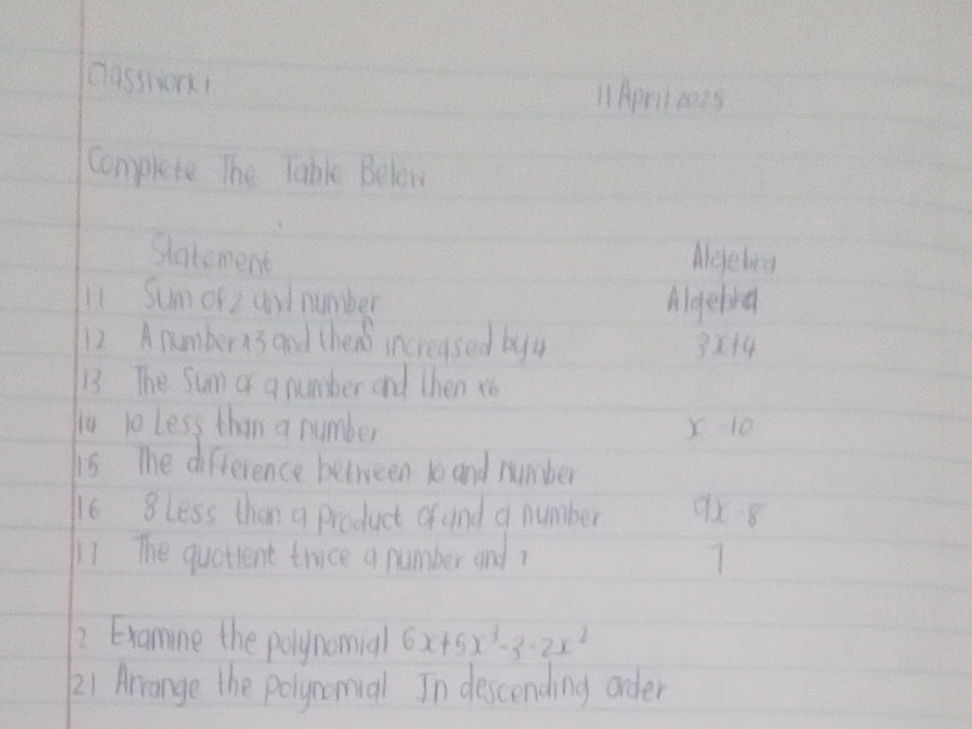 Classwork 1 11 April 2025
Complete The Table Below
Statement Algebra
11 Sum of 2 and number Algebra
12 A number x3 and then increased by 4 3x+4
13 The Sum of a number and then x6
14 10 Less than a number x-10
15 The difference between 10 and number
16 8 Less than a product of and a number 9x-8
17 The quotient twice a number and 7 7
2 Examine the polynomial 6x+5x³-3-2x²
21 Arrange the polynomial In descending order